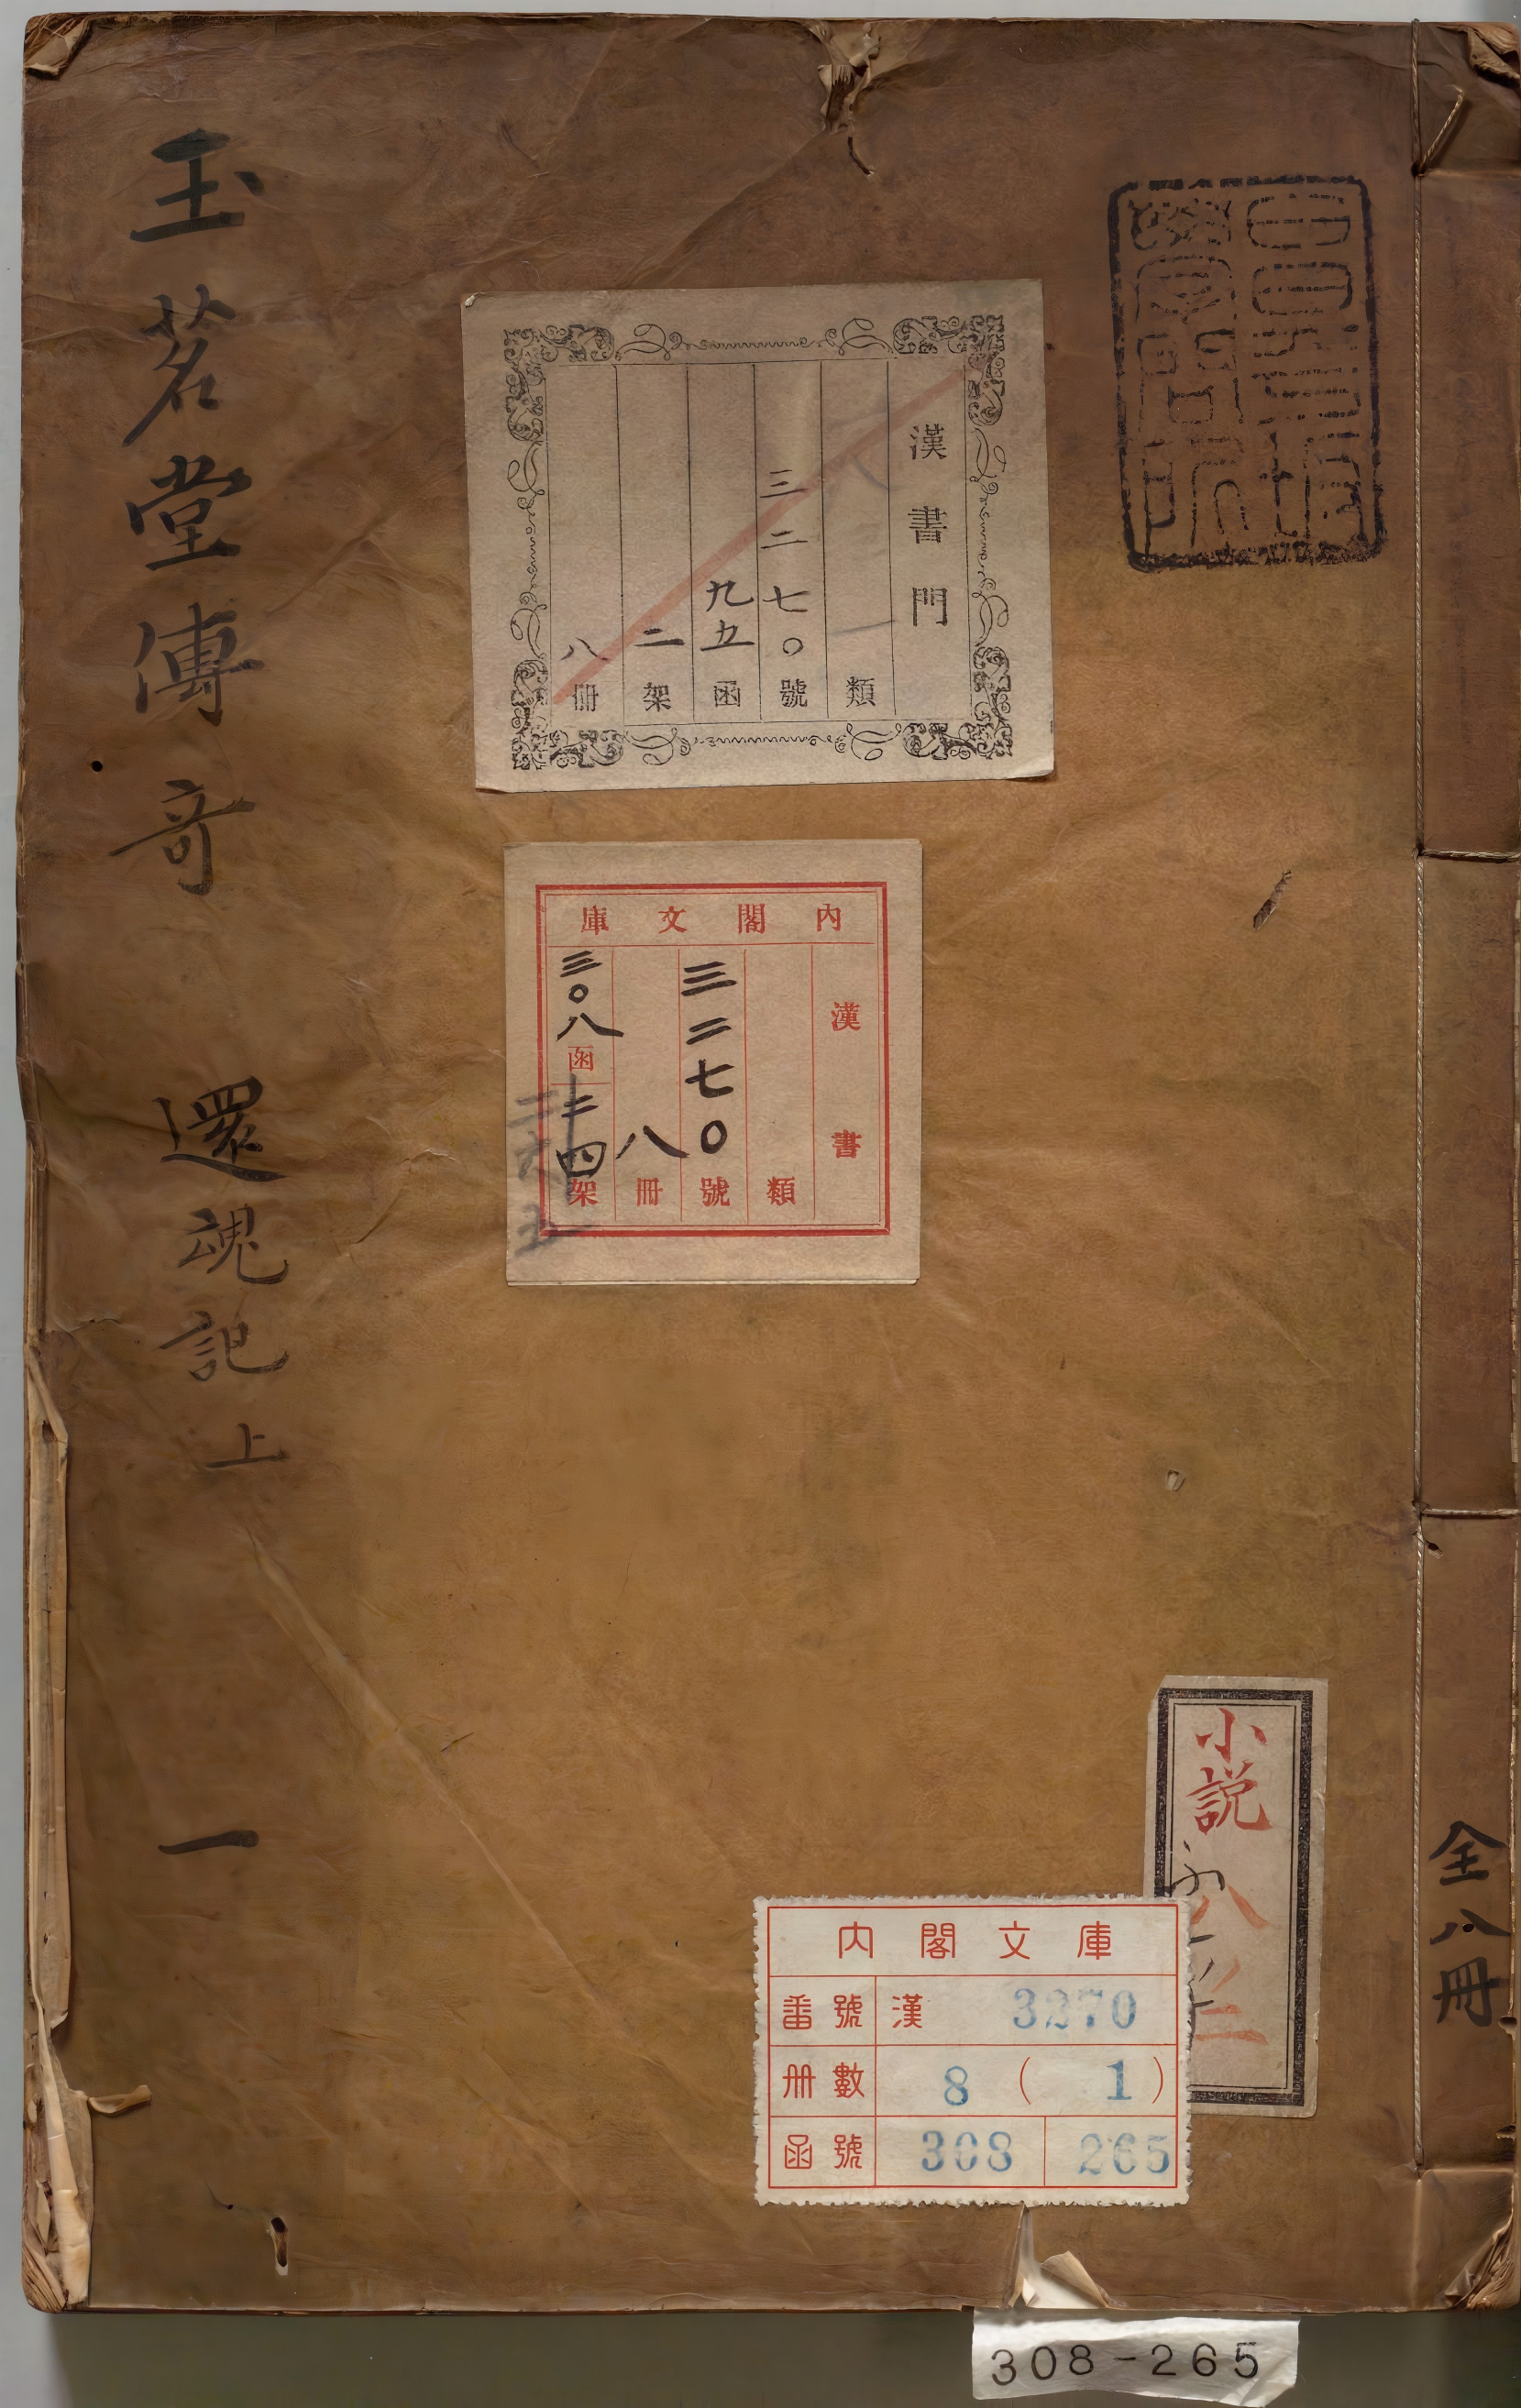 玉茗堂傳奇 還魂記上 一
漢書門
類
三二七〇號
九五函
二架
八冊
內閣文庫
漢書
類
三二七〇號
八冊
三〇八函
架
小説
全八冊
內閣文庫
番號 漢 3270
册數 8 ( 1 )
函號 308 265
308-265